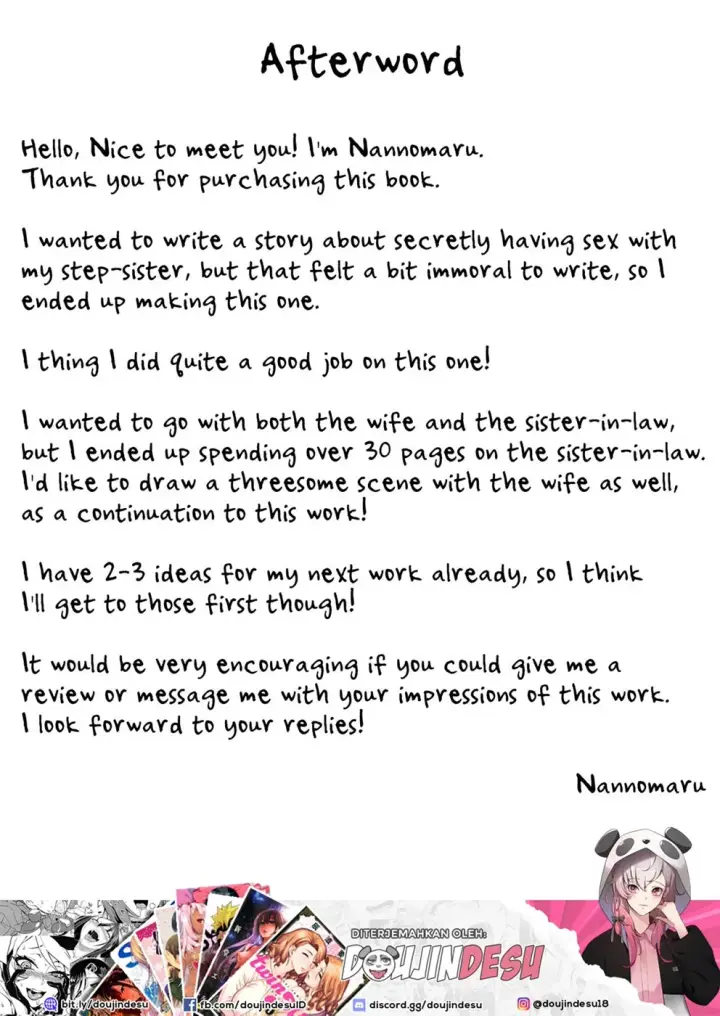 Afterword
Hello, Nice to meet you! I'm Nannomaru.
Thank you for purchasing this book.
I wanted to write a story about secretly having sex with
my step-sister, but that felt a bit immoral to write, so I
ended up making this one.
I thing I did quite a good job on this one!
I wanted to go with both the wife and the sister-in-law,
but I ended up spending over 30 pages on the sister-in-law.
I'd like to draw a threesome scene with the wife as well,
as a continuation to this work!
I have 2-3 ideas for my next work already, so I think
I'll get to those first though!
It would be very encouraging if you could give me a
review or message me with your impressions of this work.
I look forward to your replies!
Nannomaru
DITERJEMAHKAN OLEH:
DOUJINDESU
bit.ly/doujindesu
fb.com/doujindesuID
discord.gg/doujindesu
@doujindesu18